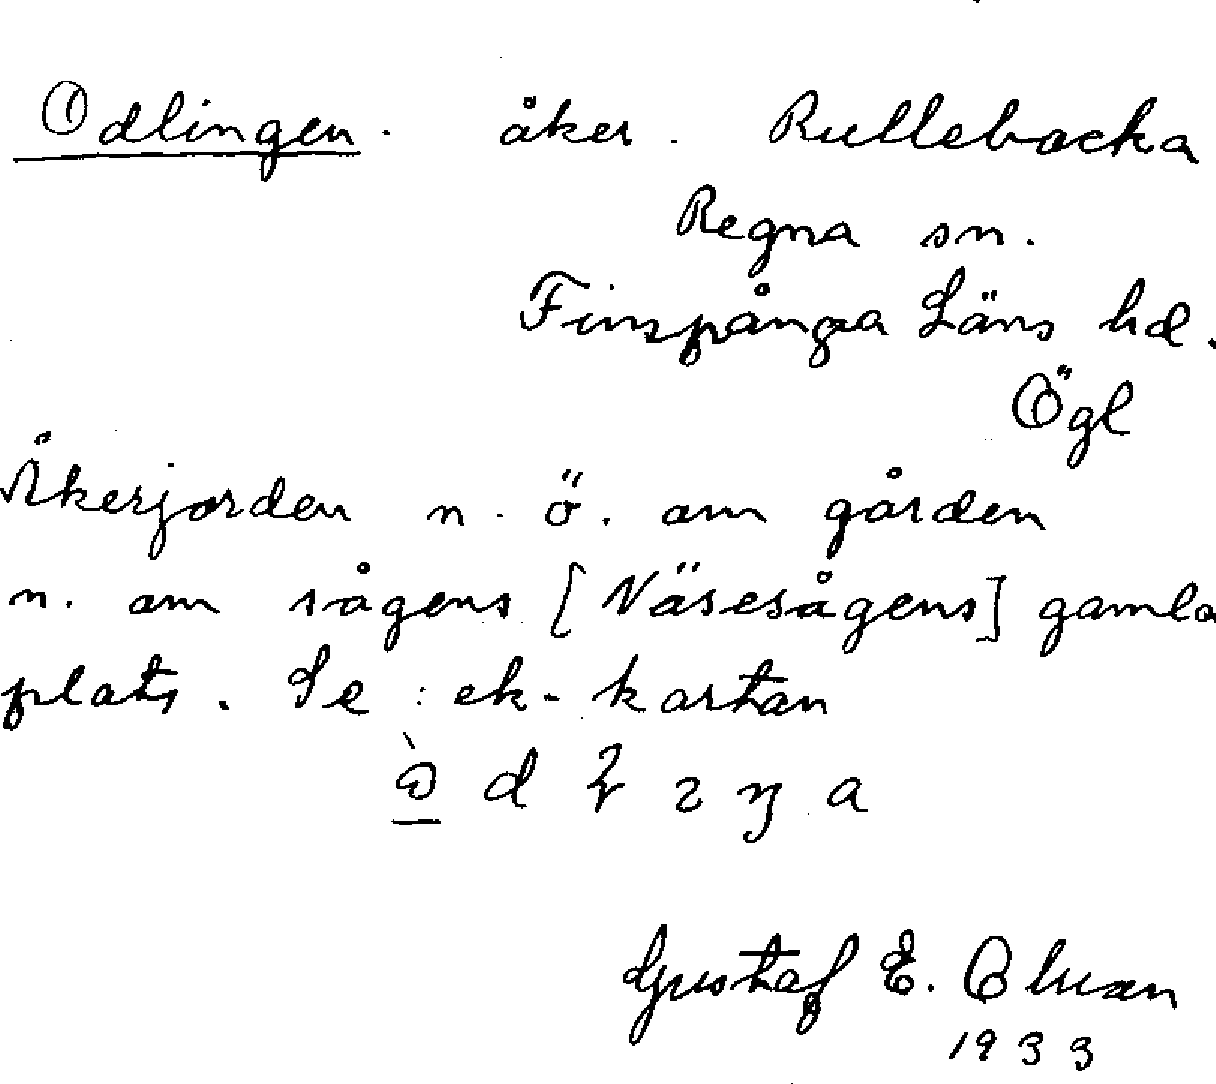 Odlingen. åker. Rullebacka
Regna sn.
Finspånga Läns hd.
Ögl
Åkerjorden n.ö. om gården
n. om sågens [Näsesågens] gamla
plats. Se: ek-kartan
Gustaf E.
1933